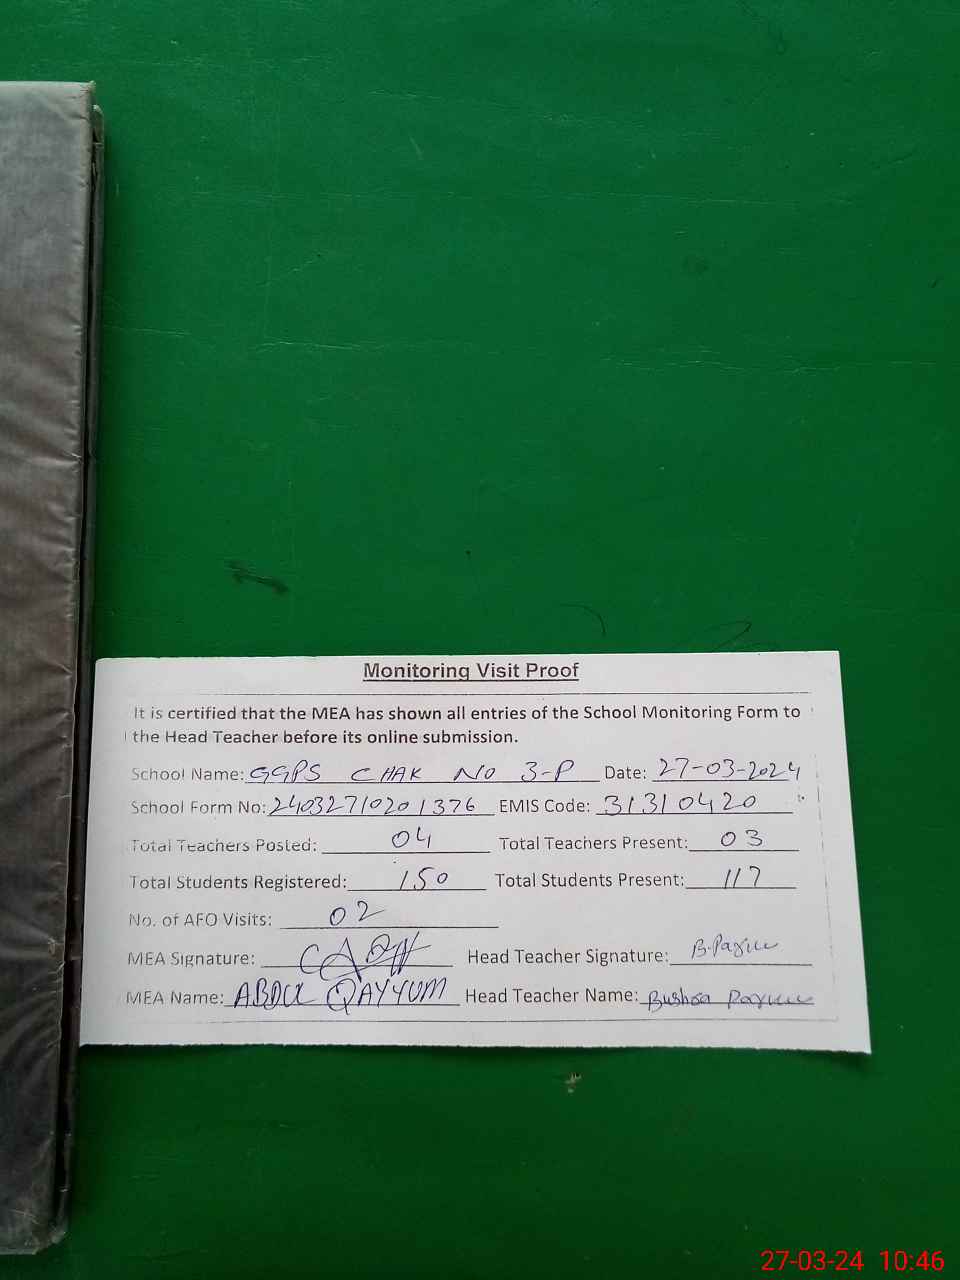 Monitoring Visit Proof
It is certified that the MEA has shown all entries of the School Monitoring Form to
the Head Teacher before its online submission.
School Name: GGPS CHAK NO 3-P Date: 27-03-2024
School Form No: 24032710201376 EMIS Code: 31310420
Total Teachers Posted: 04 Total Teachers Present: 03
Total Students Registered: 150 Total Students Present: 117
No. of AFO Visits: 02
MEA Signature: Head Teacher Signature:
MEA Name: ABDUL QAYYUM Head Teacher Name: Bushra
27-03-24 10:46